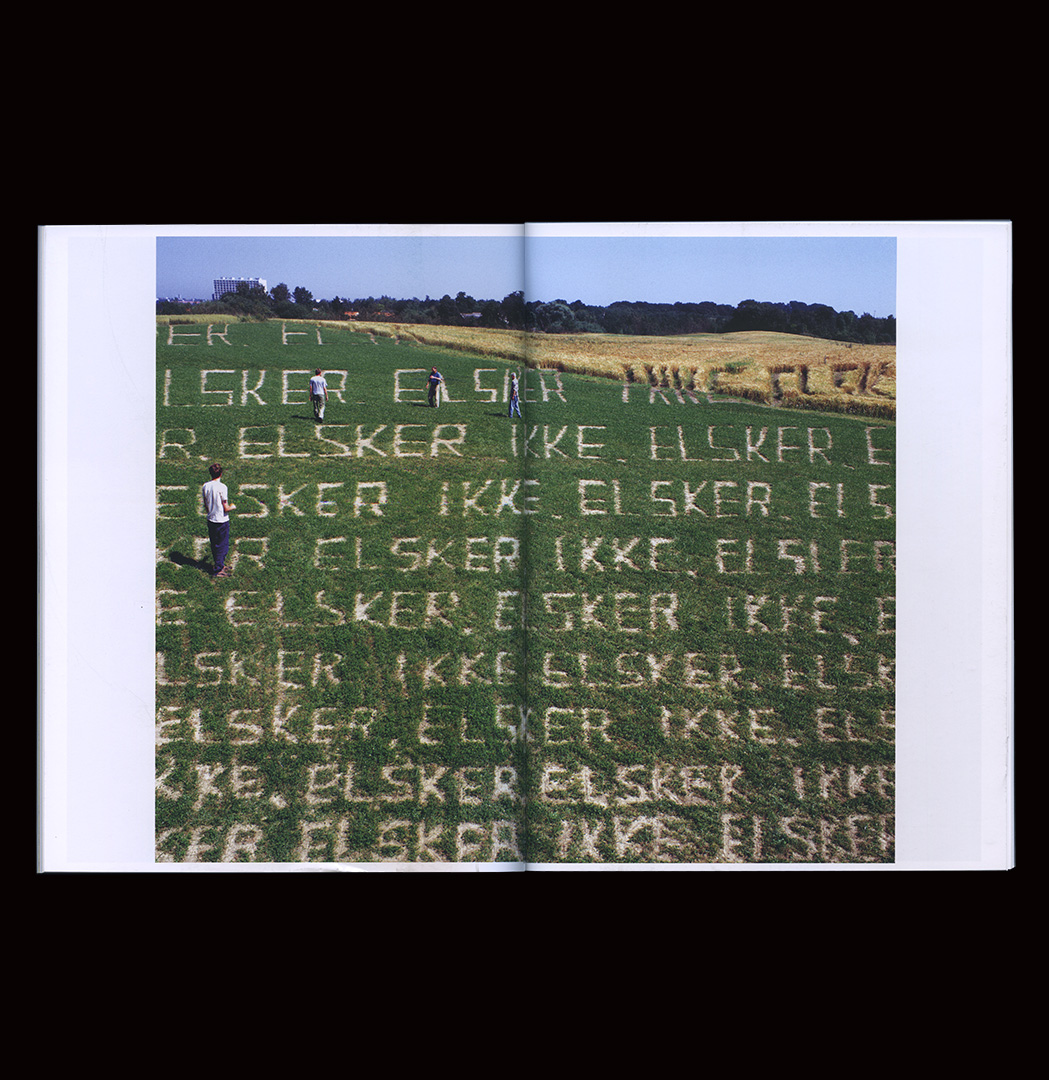 ER
LSKER ELSKER IKKE
R. ELSKER IKKE. ELSKER. E
ELSKER IKKE. ELSKER. ELS
KER ELSKER IKKE. ELSKER
E ELSKER. ELSKER IKKE. E
LSKER IKKE ELSKER. ELSK
ELSKER, ELSKER IKKE. ELS
KKE. ELSKER ELSKER IKKE
KER ELSKER IKKE ELSKER